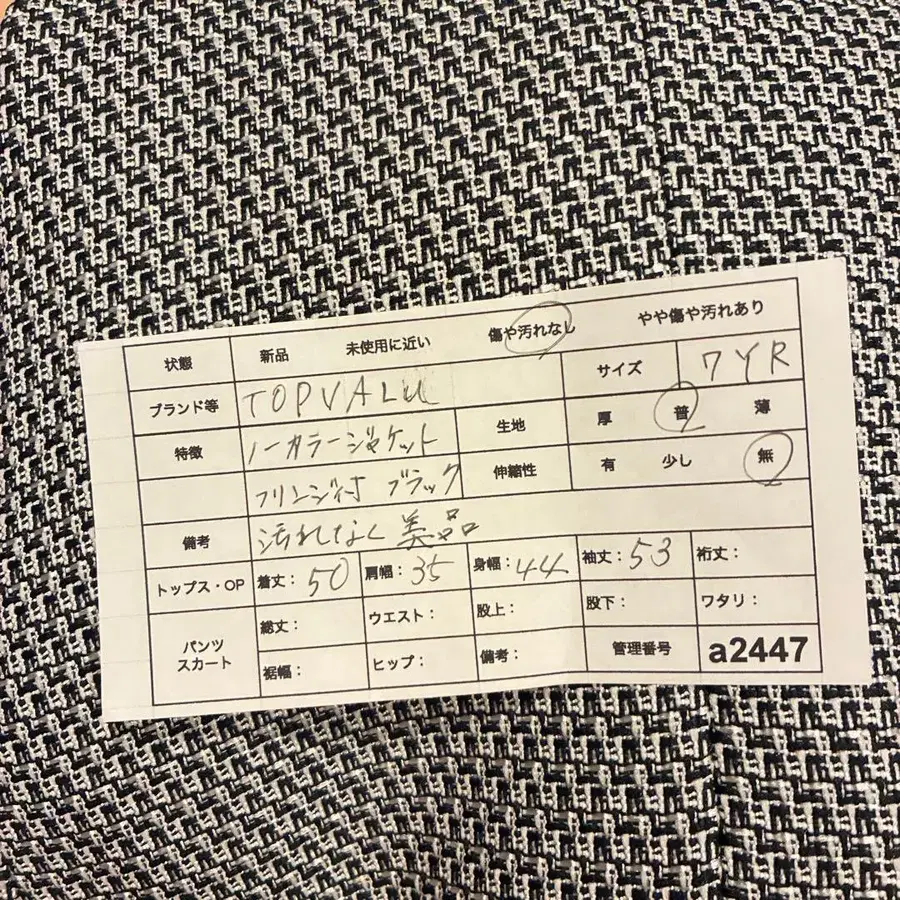 状態 新品 未使用に近い 傷や汚れなし やや傷や汚れあり
ブランド等 TOPVALU サイズ 7YR
特徴 ノーカラージャケット 生地 厚 普 薄
フリンジ付 ブラック 伸縮性 有 少し 無
備考 汚れなく美品
トップス・OP 着丈: 50 肩幅: 35 身幅: 44 袖丈: 53 裄丈:
パンツ スカート 総丈: ウエスト: 股上: 股下: ワタリ:
裾幅: ヒップ: 備考: 管理番号 a2447